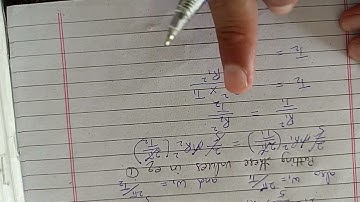 also ω₁ = 2π/T₁ and ω₂ = 2π/T₂
Putting these values in eq ①
2/5 MR₁² (2π/T₁) = 2/5 MR₂² (2π/T₂)
R₁²/T₁ = R₂²/T₂
T₂ = ² × T₁ / R₁²
T₂ =